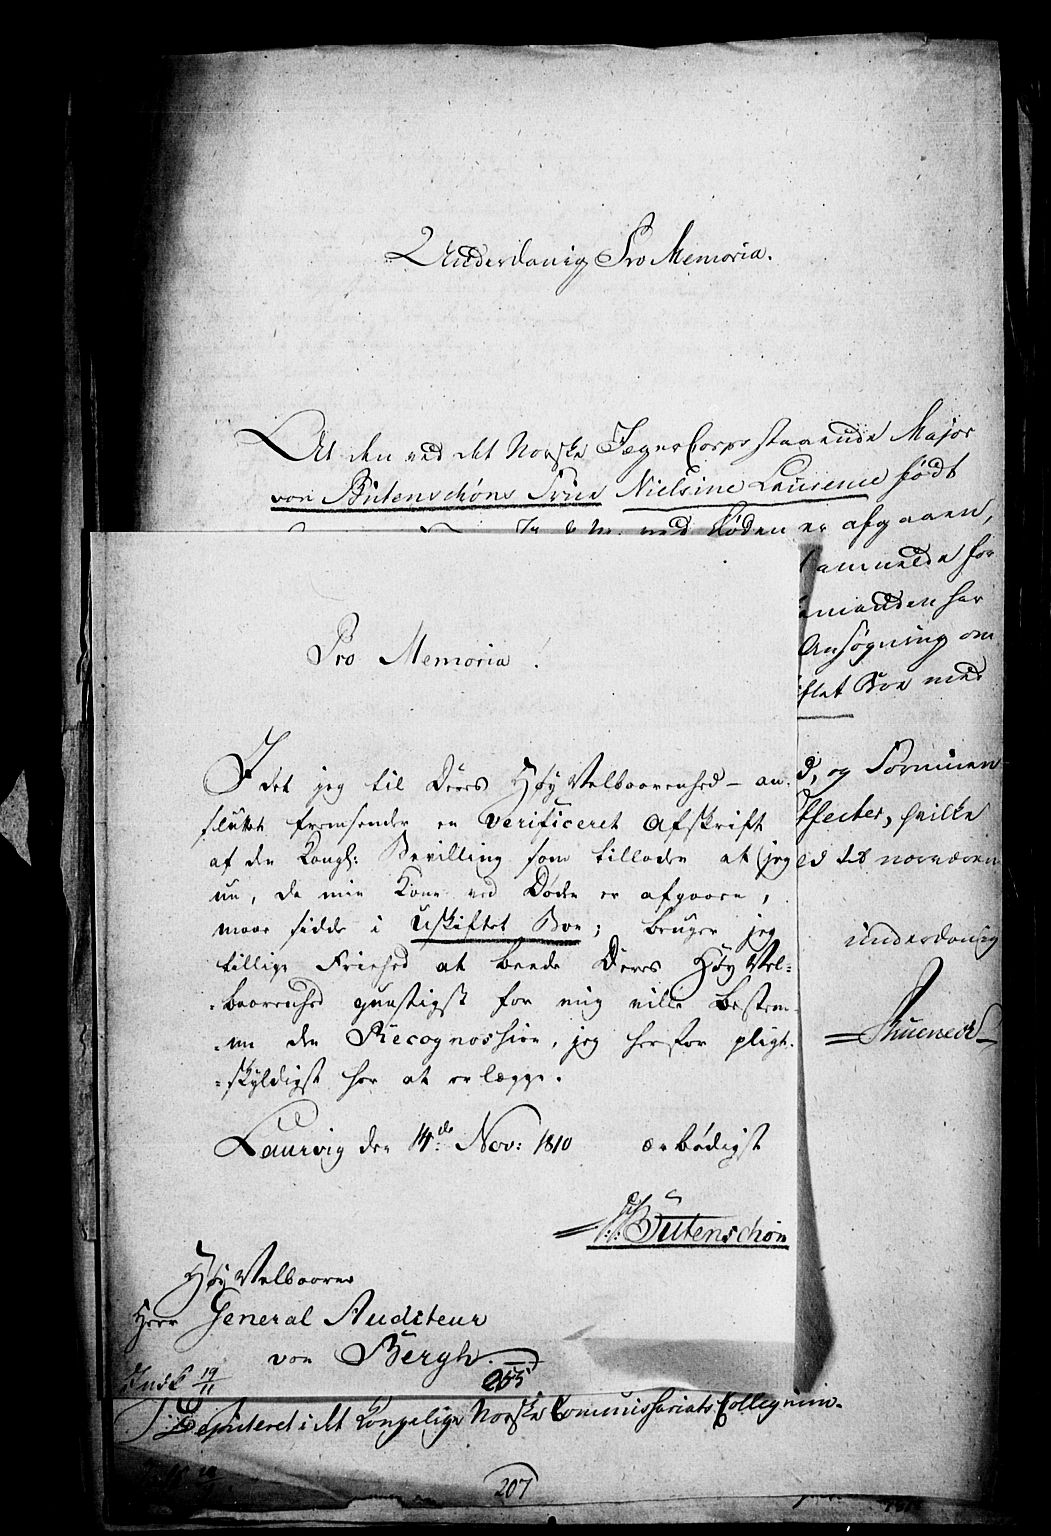 Underdanig Pro Memoria.
At den ved det Norske JægerCorps staaende Major
von Bütenschøns Frue Nielsine Laurence født
ved Døden er afgaaen,
anmelde for
manden har
Ansøgning om
iftet Boe med
d, og Formuen
Effecter, hvilke
ed det nærværen
underdanig
Stuenedt
Pro Memoria!
I det jeg til Deres HøyVelbaarenhed - an-
sluttet fremsender en verificeret Afskrift
af den Kongl: Bevilling som tillader at jeg
nu, da min Kone ved Døden er afgaaen,
maae sidde i Uskiftet Boe; bruger jeg
tillige Friehed at beede Deres HøyVel=
=baarenhed gunstigst for mig ville bestem-
=me den Recognoshion, jeg herfor pligt-
=skyldigst har at erlægge.
Laurvig den 14de Nov: 1810 ærbødigst
Bütenschøn
HøyVelbaarne
Herr General Auditeur
von Bergh.
Indk 19/11
255
Deputeret i det Kongelige Norske Commissariats Collegium.
207